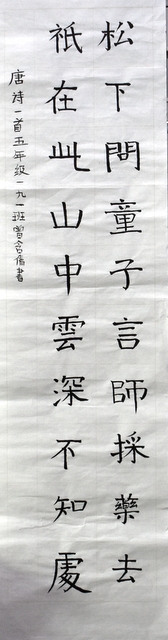 松下問童子言師採藥去
祇在此山中雲深不知處
唐詩一首五年级一九一班曾言倩書